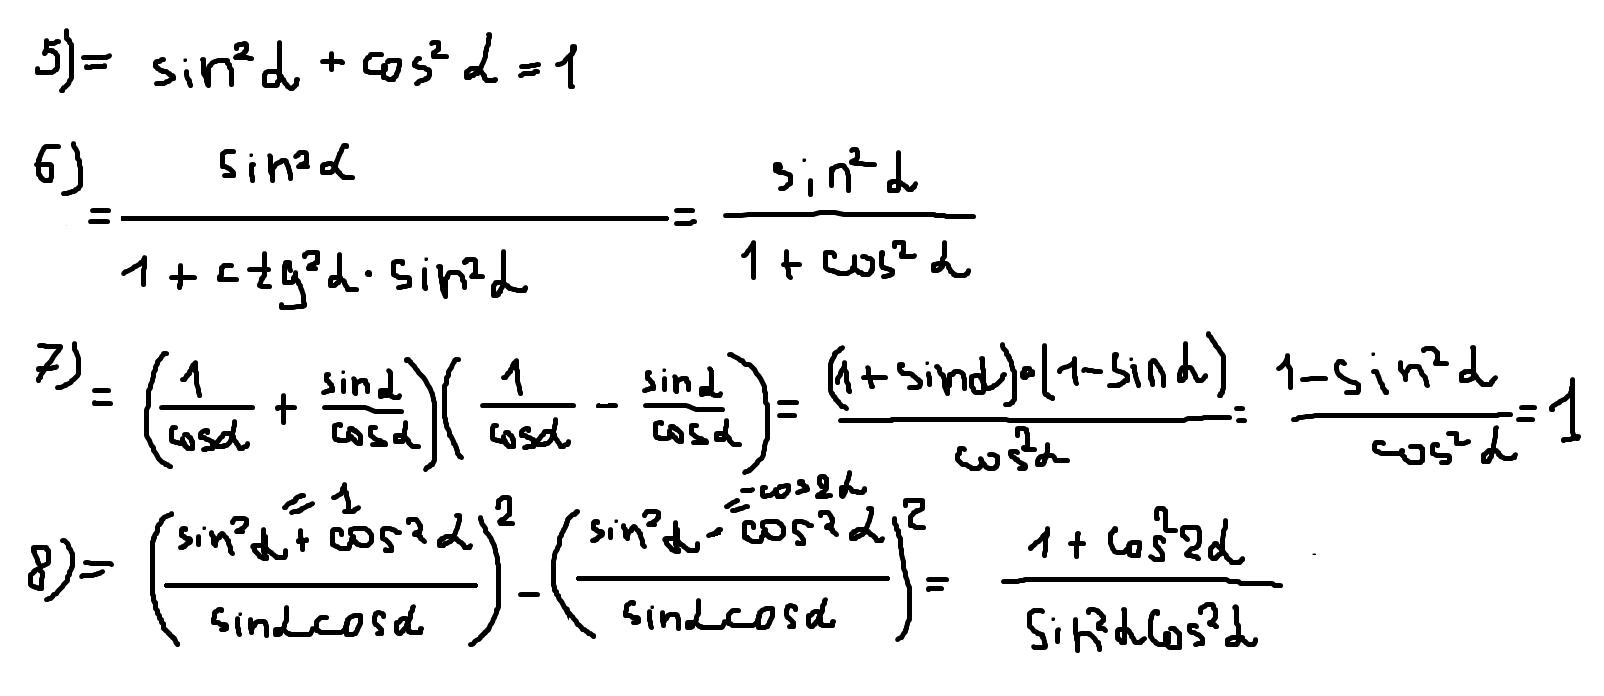 5) = sin²α + cos²α = 1
6) = sin²α / (1 + ctg²α · sin²α) = sin²α / (1 + cos²α)
7) = (1/cosα + sinα/cosα)(1/cosα − sinα/cosα) = (1+sinα)·(1−sinα) / cos²α = (1−sin²α) / cos²α = 1
= 1 = −cos2α
8) = ((sin²α + cos²α) / (sinα cosα))² − ((sin²α − cos²α) / (sinα cosα))² = (1 + cos²2α) / (sin²α cos²α)